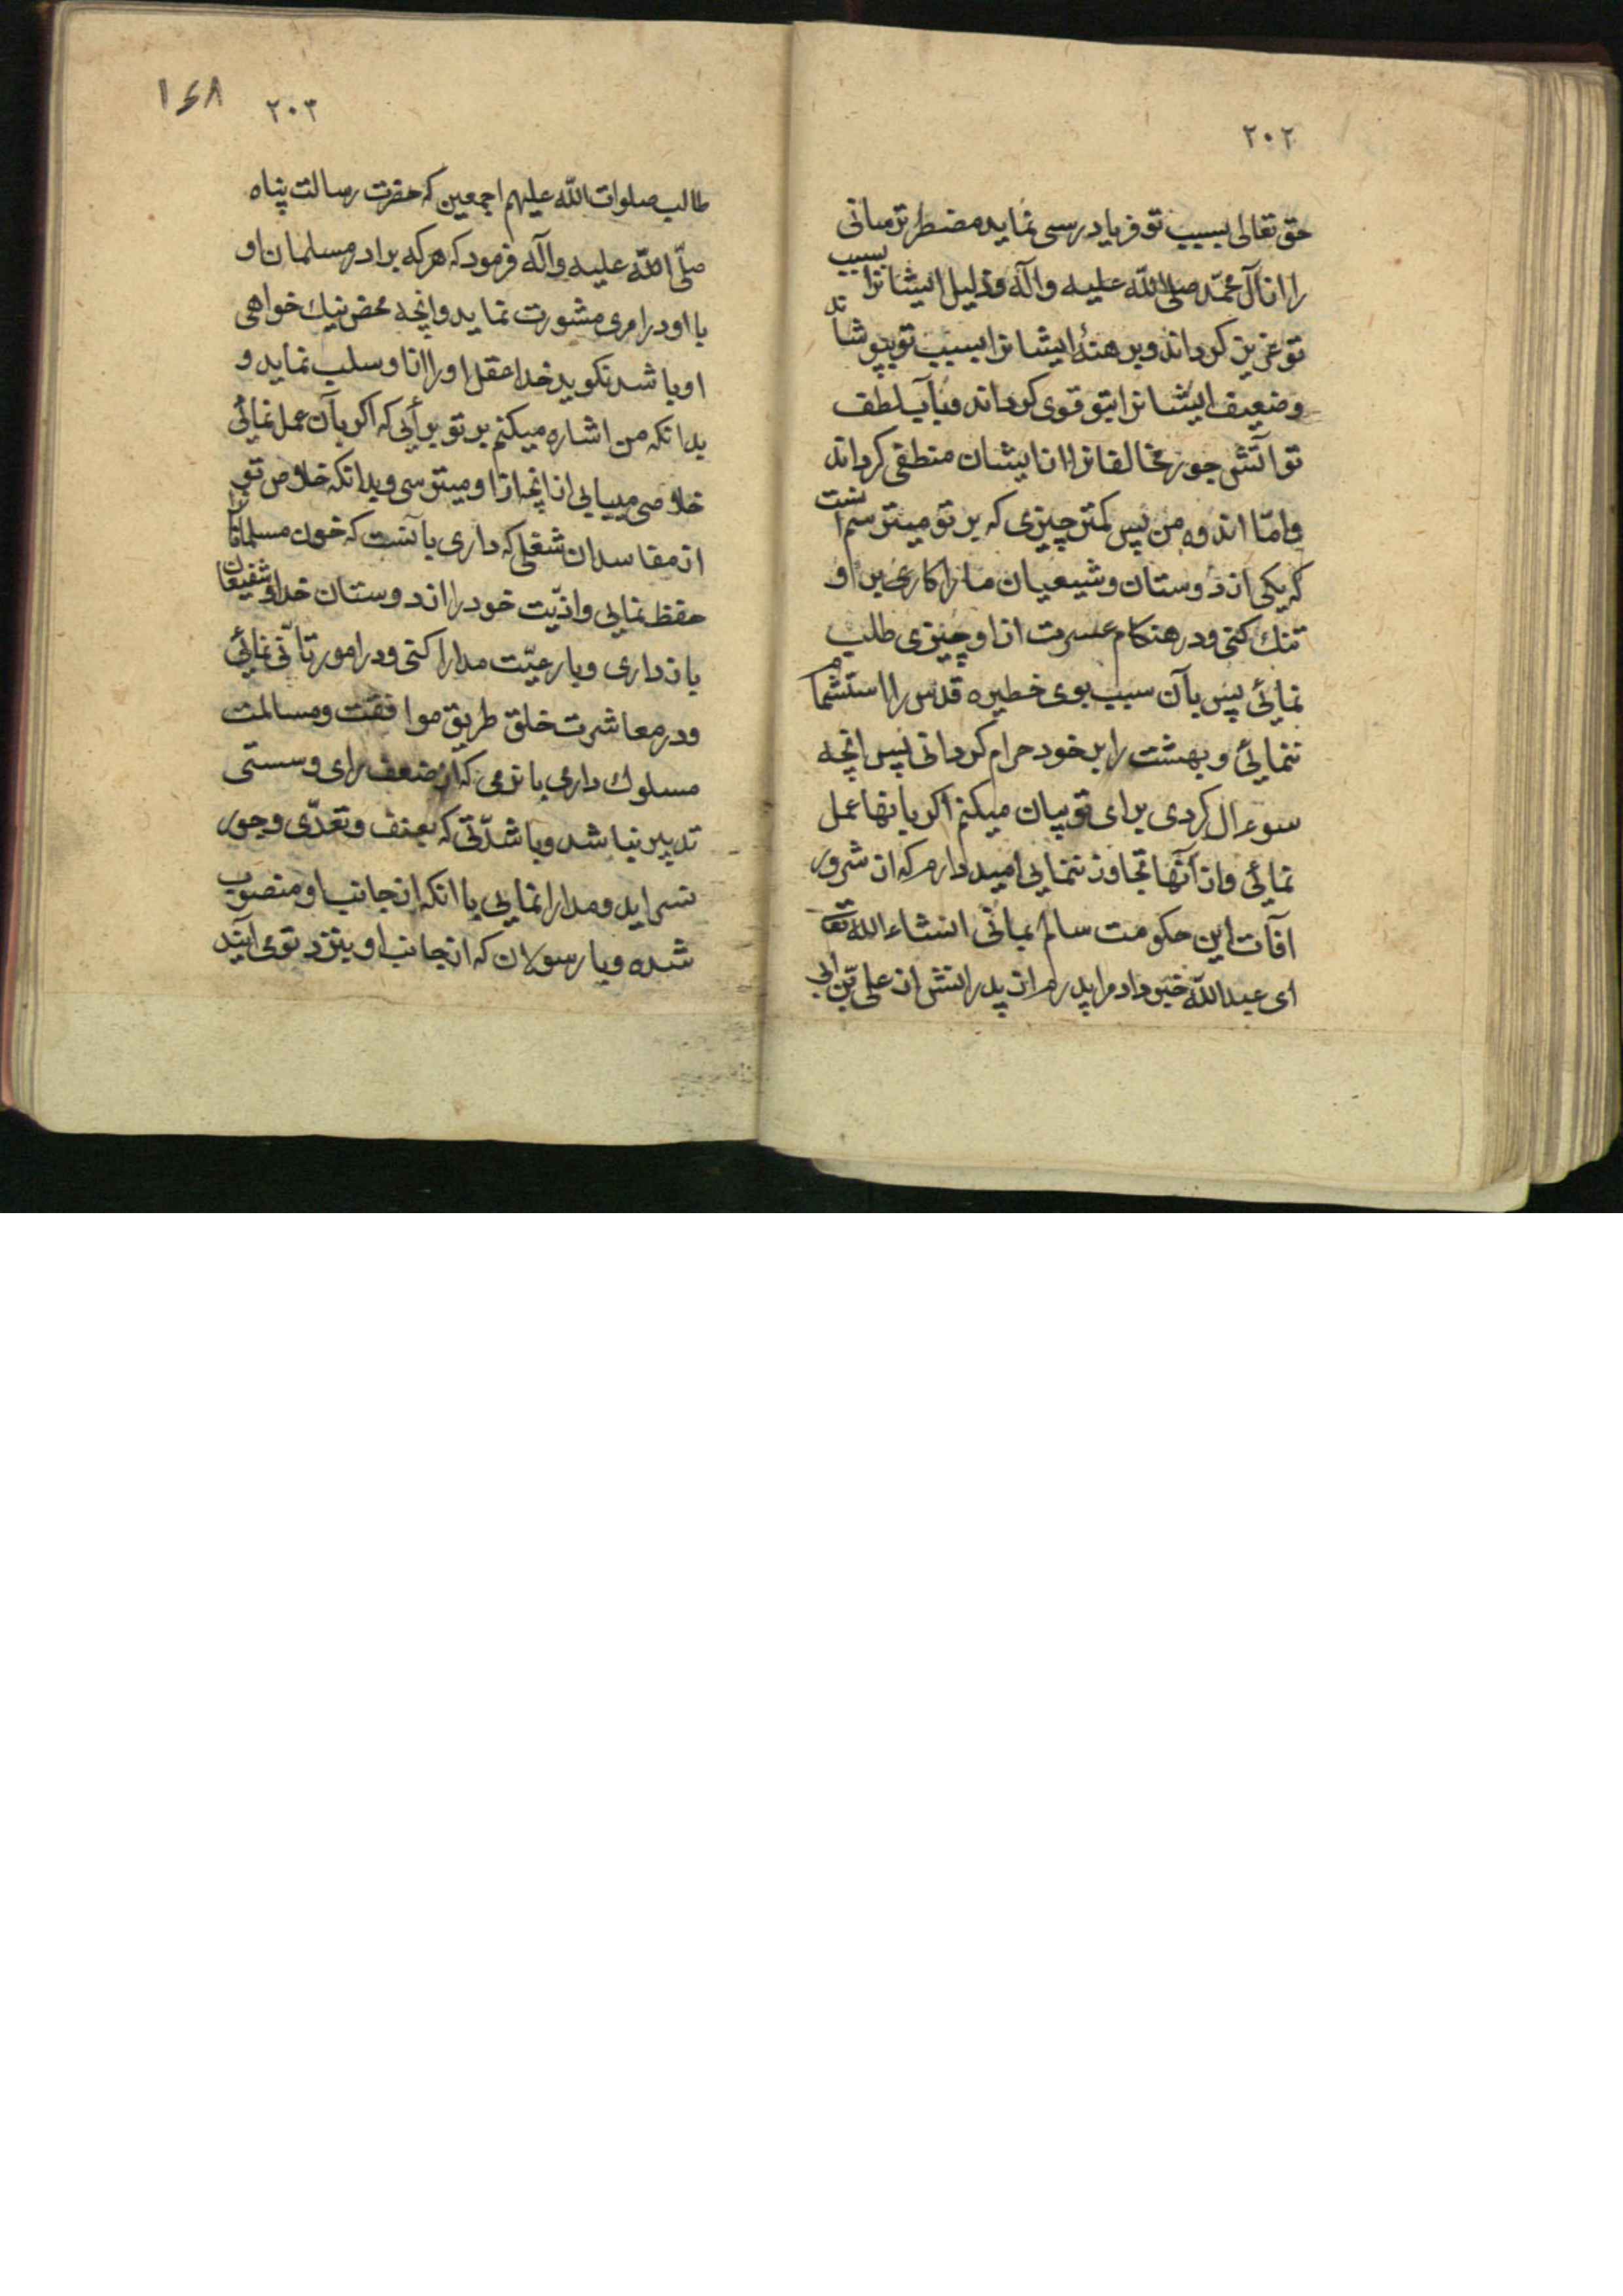 ۲۰۲
حق تعالی بسبب تو فریاد رسی نماید مضطر ترسانی
را از آل محمّد صلی اللّه علیه و آله و ذلیل ایشانرا بسبب
تو عزیز کرداند و برهنهٔ ایشانرا بسبب تو بپوشاند
و ضعیف ایشانرا بتو قوی کرداند و بآب لطف
تو آتش جور مخالفانرا از ایشان منطفی کرداند
و امّا اندوه من پس کمتر چیزی که بر تو میترسم انست
که یکی از دوستان و شیعیان ما را کاری بر او
تنك کنی و در هنکام عسرت از او چیزی طلب
نمائی پس بآن سبب بوی خطیره قدس را استشمام
ننمائی و بهشت را بر خود حرام کردانی پس انچه
سوءال کردی برای تو بیان میکنم اکر بانها عمل
نمائی و از آنها تجاوز ننمایی امید دارم که از شرور
افآت این حکومت سالم بمانی انشاء اللّه تعا
ای عبد اللّه خبر داد مرا پدرم از پدرانش از علی بن ابی
۱۶۸
۲۰۳
طالب صلوات اللّه علیهم اجمعین که حضرت رسالت پناه
صلّی اللّه علیه و آله فرمود که هر که برادر مسلمان او
با او در امری مشورت نماید و انچه محض نیك خواهی
او باشد نکوید خدا عقل او را از او سلب نماید و
بدانکه من اشاره میکنم بر تو برأیی که اکر بآن عمل نمائی
خلاصی میبابی از انچه از او میترسی و بدانکه خلاصی تو
از مفاسد ان شغلی که داری بآنست که خون مسلمانان
حفظ نمایی و اذیّت خود را از دوستان خدا و شفیعان
بازداری و با رعیّت مدارا کنی و در امور تأنّی نمائی
و در معاشرت خلق طریق موافقت و مسالمت
مسلوك داری با نرمی که از ضعف رای و سستی
تدبیر نباشد و با شدّتی که بعنف و تعدّی و جور
نسراید و مدارا نمایی با انکه از جانب او منصوب
شده و با رسولان که از جانب او بنزد توی آیند